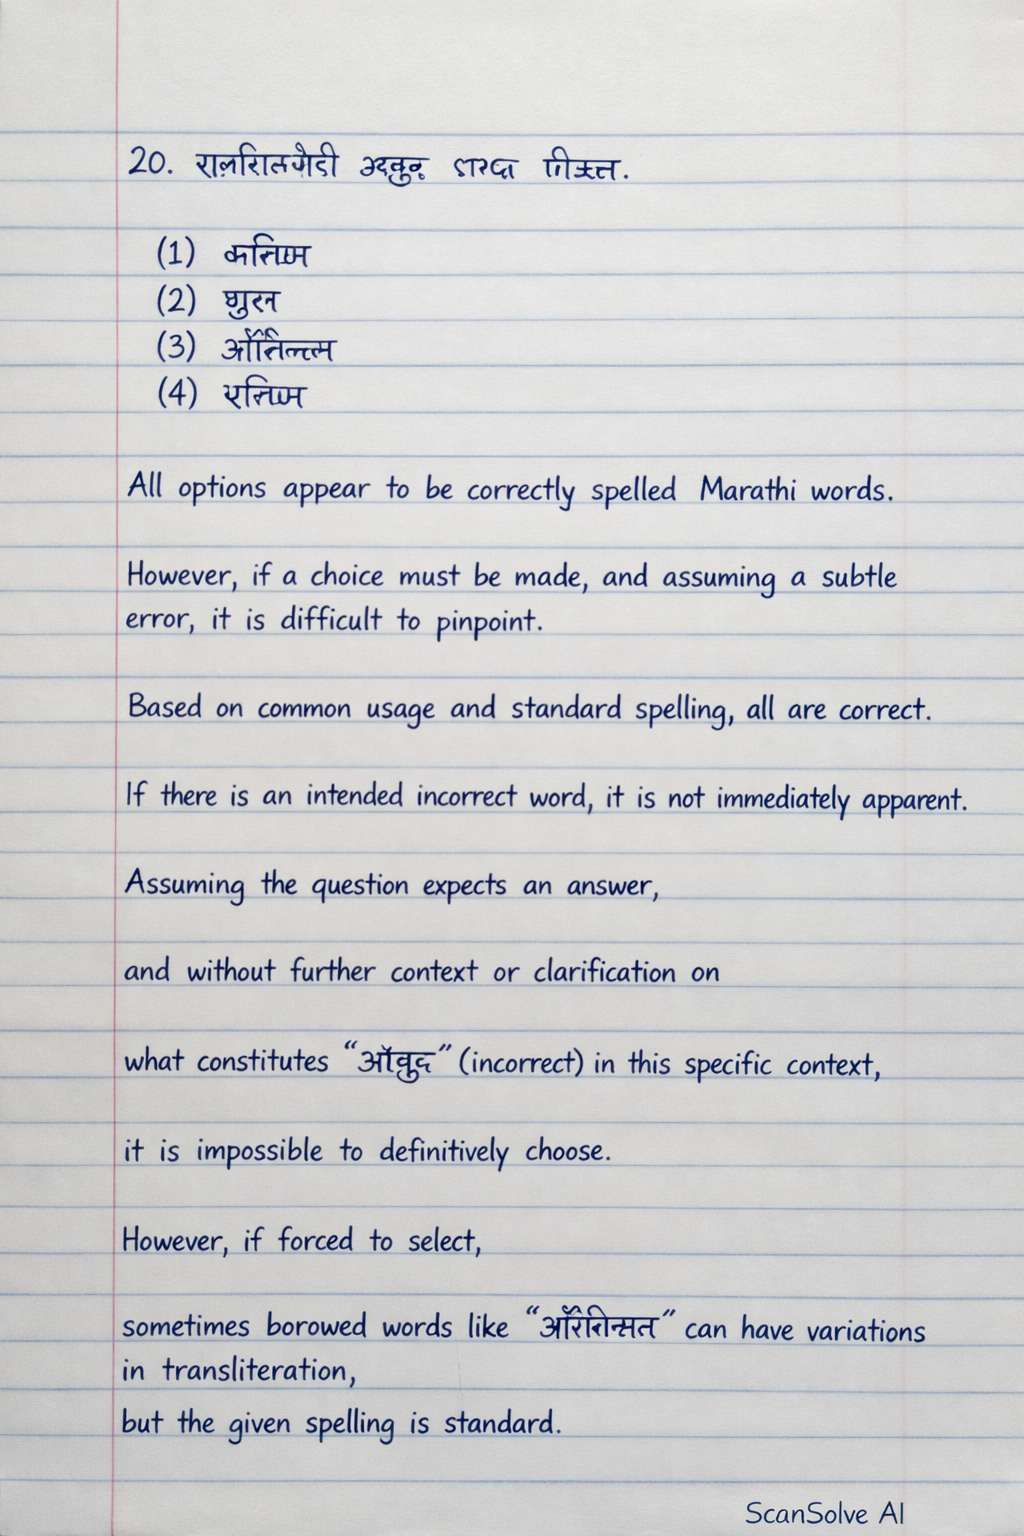 20.
(1)
(2)
(3)
(4)
All options appear to be correctly spelled Marathi words.
However, if a choice must be made, and assuming a subtle
error, it is difficult to pinpoint.
Based on common usage and standard spelling, all are correct.
If there is an intended incorrect word, it is not immediately apparent.
Assuming the question expects an answer,
and without further context or clarification on
what constitutes (incorrect) in this specific context,
it is impossible to definitively choose.
However, if forced to select,
sometimes borowed words like can have variations
in transliteration,
but the given spelling is standard.
ScanSolve AI